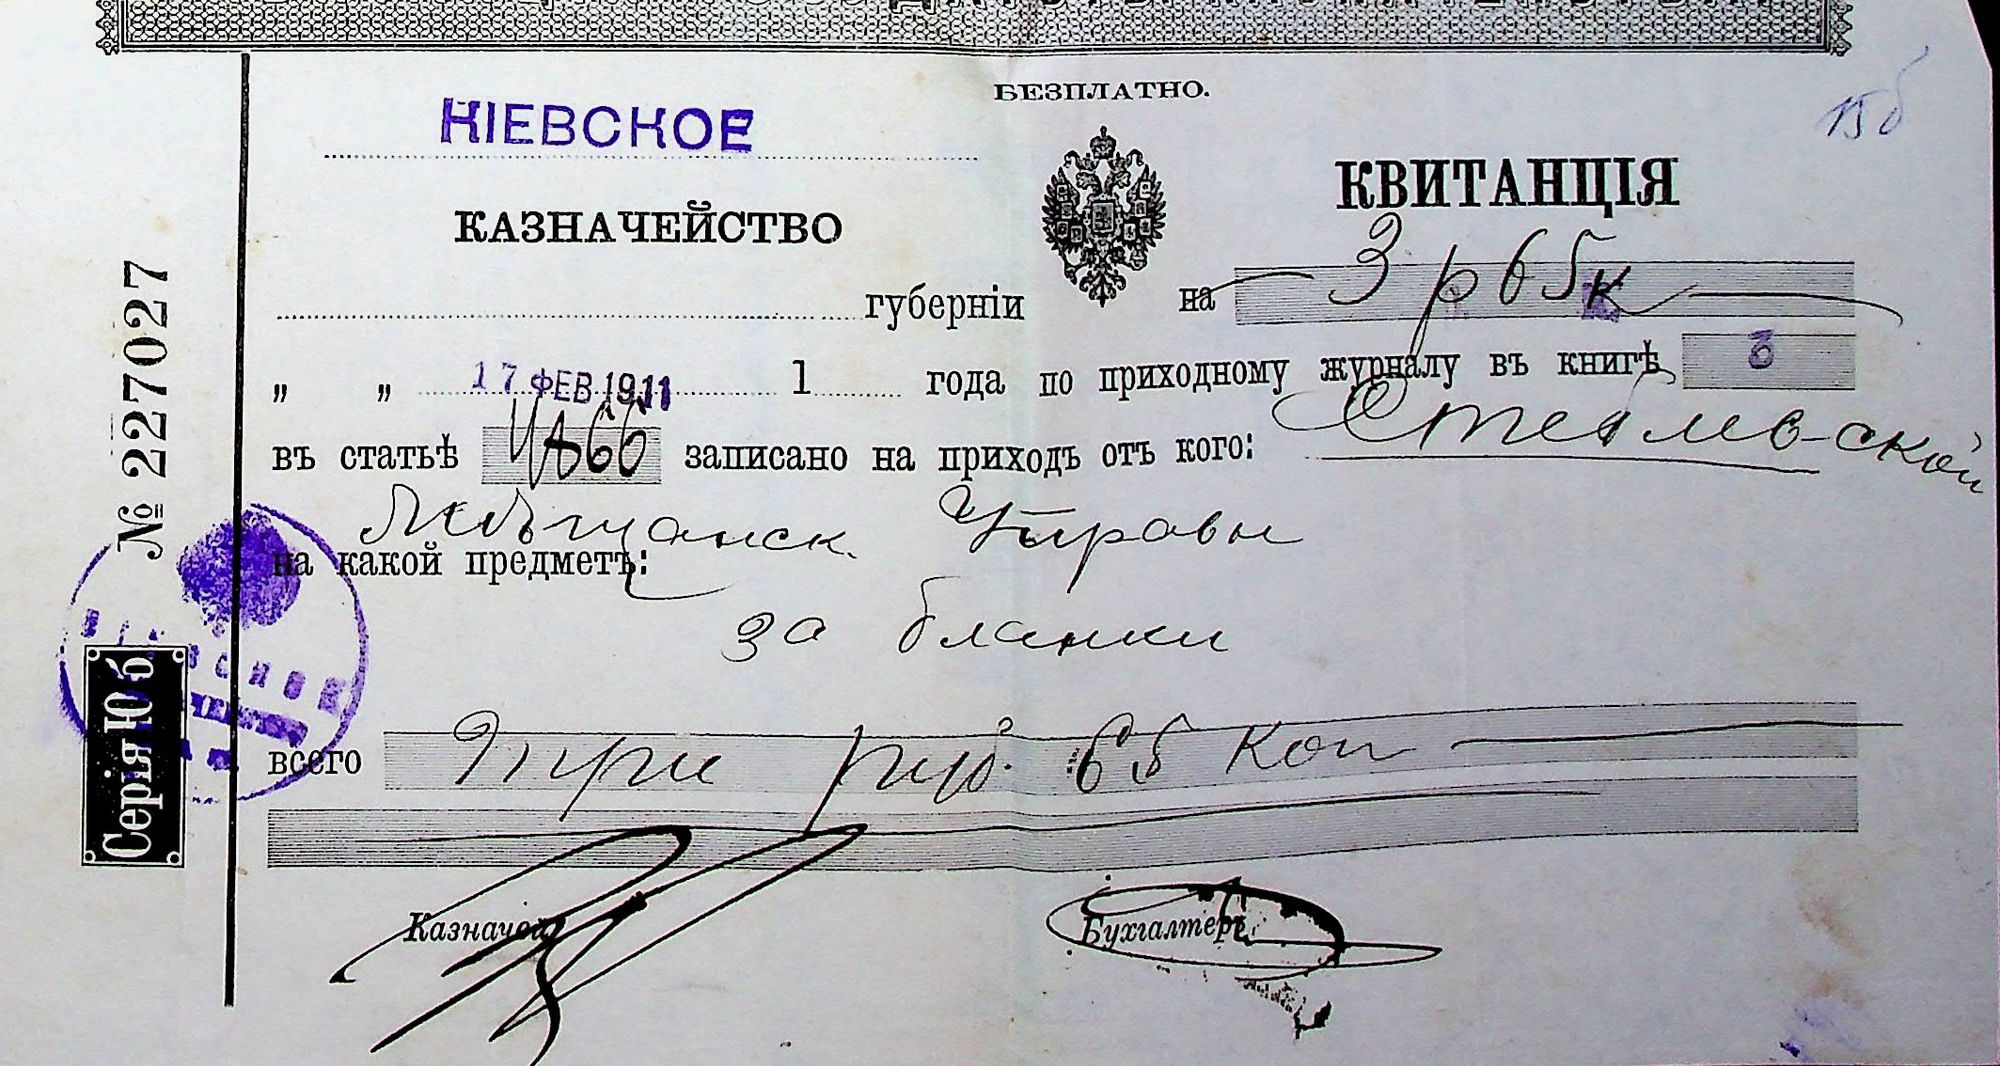 БЕЗПЛАТНО.
15б
КІЕВСКОЕ
КВИТАНЦІЯ
КАЗНАЧЕЙСТВО
губерніи
на 3 р 65 к
„ „ 17 ФЕВ 1911 1 года по приходному журналу въ книгѣ 3
въ статьѣ записано на приходъ отъ кого:
Мѣщанск. Управы
на какой предметъ:
за бланки
всего Три руб. 65 коп
Казначей
Бухгалтеръ
№ 227027
Серія Юб